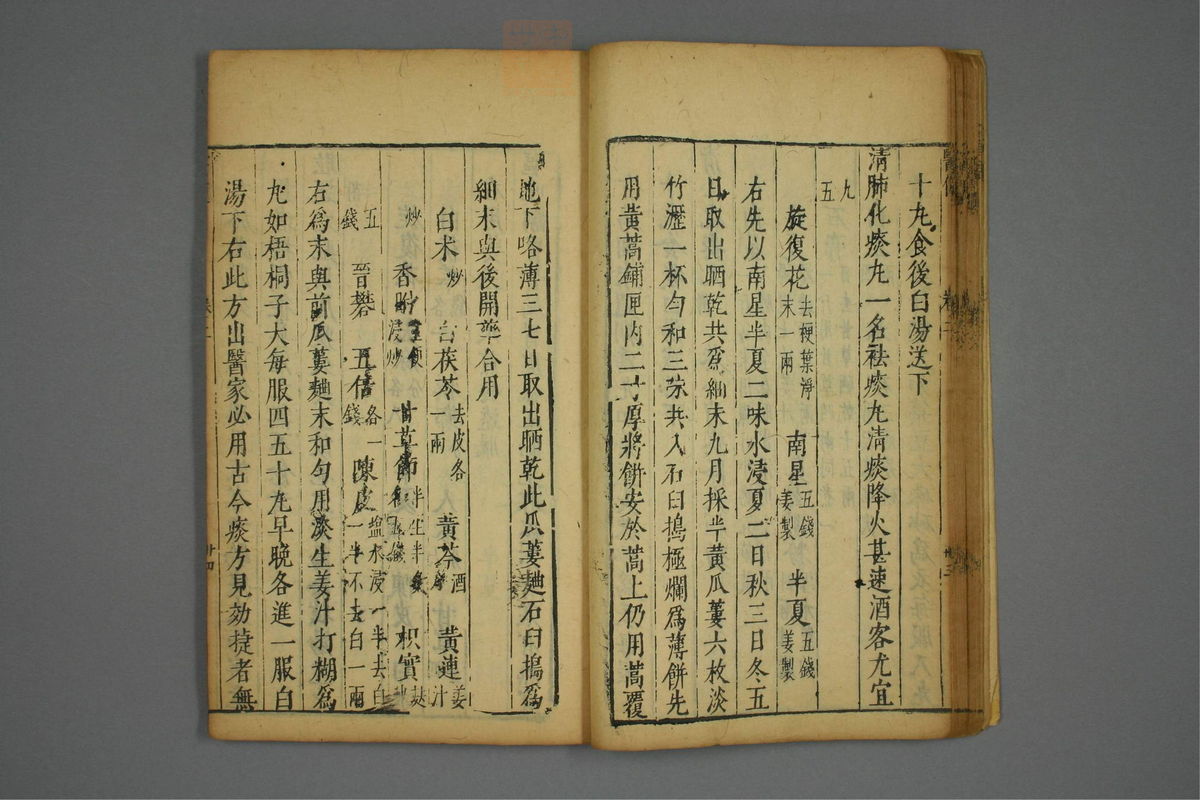 十丸食後白湯送下
清肺化痰丸一名祛痰丸清痰降火甚速酒客尤宜
九五
旋復花去梗葉淨末一兩 南星五錢姜製 半夏五錢姜製
右先以南星半夏二味水浸夏二日秋三日冬五
日取出晒乾共爲細末九月採半黃瓜蔞六枚淡
竹瀝一杯勻和三茶共入石臼搗極爛爲薄餅先
用黃蒿鋪匣內二寸厚將餅安於蒿上仍用蒿覆
地下咯薄三七日取出晒乾此瓜蔞麯石臼搗爲
細末與後開藥合用
白术炒 白茯苓去皮各一兩 黃芩酒炒 黃連姜汁
炒 香附童便浸炒 甘草節半生半炙各五錢 枳實麸炒
五錢 晉礬 五倍各一錢 陳皮鹽水浸一半去白一半不去白一兩
右爲末與前瓜蔞麯末和勻用淡生姜汁打糊爲
丸如梧桐子大每服四五十丸早晚各進一服白
湯下右此方出醫家必用古今痰方見効捷者無
廿四